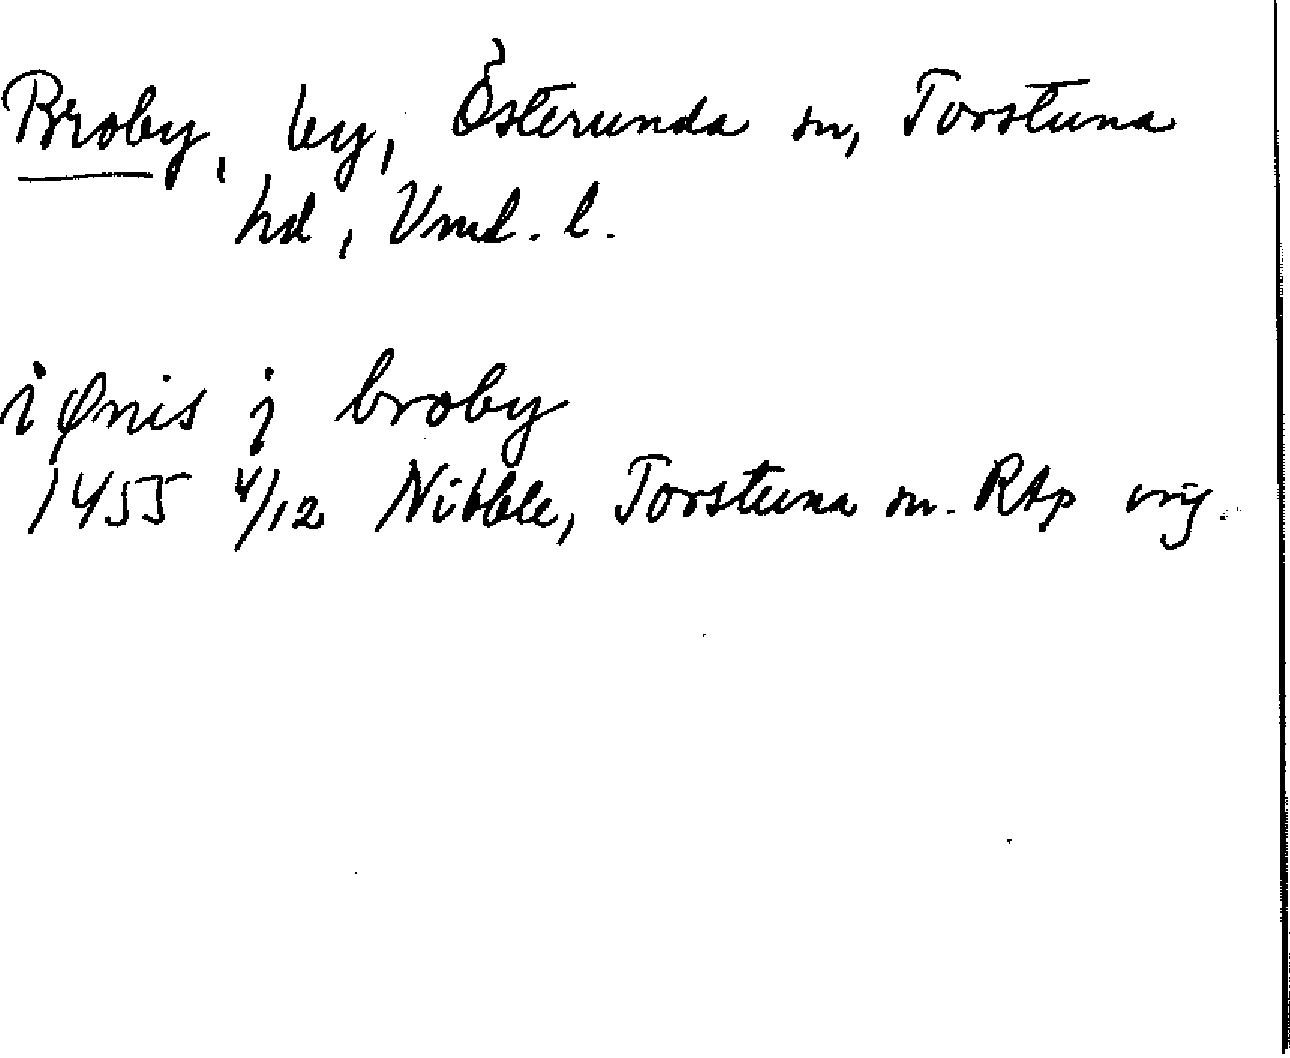 Broby, by, Österunda sn, Torstuna
hd, Vmd. l.
i Ønis j broby
1455 4/12 Nibble, Torstuna sn. RAp orig.